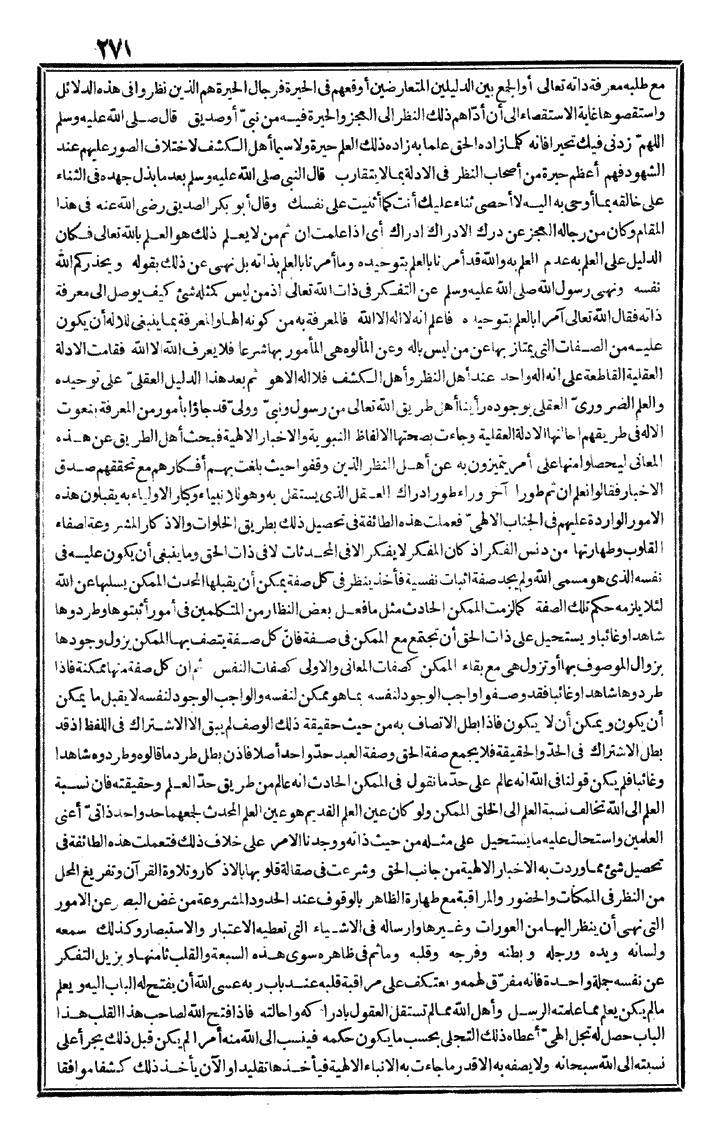 ٢٧١
مع طلبه معرفة ذاته تعالى أوالجمع بين الدليلين المتعارضين أوقعهم فى الحيرة فرجال الحيرة هم الذين نظروا فى هذه الدلائل
واستقصوها غاية الاستقصاء الى أن أدّاهم ذلك النظر الى العجز والحيرة فيه من نبىّ أوصديق قال صلى الله عليه وسلم
اللهمّ زدنى فيك تحيرا فانه كلما زاده الحق علما به زاده ذلك العلم حيرة ولاسيما أهل الكشف لاختلاف الصور عليهم عند
الشهود فهم أعظم حيرة من أصحاب النظر فى الادلة بمالا يتقارب قال النبى صلى الله عليه وسلم بعد ما بذل جهده فى الثناء
على خالقه بما أوحى به اليه لا أحصى ثناء عليك أنت كما أثنيت على نفسك وقال أبو بكر الصديق رضى الله عنه فى هذا
المقام وكان من رجاله العجز عن درك الادراك ادراك أى اذا علمت ان ثم من لا يعلم ذلك هو العلم بالله تعالى فكان
الدليل على العلم به عدم العلم به والله قد أمرنا بالعلم بتوحيده وما أمرنا بالعلم بذاته بل نهى عن ذلك بقوله ويحذركم الله
نفسه ونهى رسول الله صلى الله عليه وسلم عن التفكر فى ذات الله تعالى اذ من ليس كمثله شئ كيف يوصل الى معرفة
ذاته فقال الله تعالى آمرا بالعلم بتوحيده فاعلم انه لا اله الا الله فالمعرفة به من كونه الها والمعرفة بما ينبغى للاله أن يكون
عليه من الصفات التى يمتاز بها عن من ليس باله وعن المألوه هى المأمور بها شرعا فلا يعرف الله الا الله فقامت الادلة
العقلية القاطعة على انه اله واحد عند أهل النظر وأهل الكشف فلا اله الا هو ثم بعد هذا الدليل العقلىّ على توحيده
والعلم الضرورىّ العقلى بوجوده رأينا أهل طريق الله تعالى من رسول ونبىّ وولىّ قد جاؤا بأمور من المعرفة بنعوت
الاله فى طريقهم احالتها الادلة العقلية وجاءت بصحتها الالفاظ النبوية والاخبار الالهية فبحث أهل الطريق عن هذه
المعانى ليحصلوا منها على أمر يتميزون به عن أهل النظر الذين وقفوا حيث بلغت بهم أفكارهم مع تحققهم صدق
الاخبار فقالوا نعلم ان ثم طورا آخر وراء طور ادراك العقل الذى يستقل به وهو للانبياء وكبار الاولياء به يقبلون هذه
الامور الواردة عليهم فى الجناب الالهىّ فعملت هذه الطائفة فى تحصيل ذلك بطريق الخلوات والاذكار المشروعة لصفاء
القلوب وطهارتها من دنس الفكر اذ كان المفكر لا يفكر الا فى المحدثات لا فى ذات الحق وما ينبغى أن يكون عليه فى
نفسه الذى هو مسمى الله ولم يجد صفة اثبات نفسية فأخذ ينظر فى كل صفة يمكن أن يقبلها المحدث الممكن يسلبها عن الله
لئلا يلزمه حكم تلك الصفة كما لزمت الممكن الحادث مثل ما فعل بعض النظار من المتكلمين فى أمور أثبتوها وطردوها
شاهدا وغائبا ويستحيل على ذات الحق أن تجتمع مع الممكن فى صفة فانّ كل صفة يتصف بها الممكن يزول وجودها
بزوال الموصوف بها أو تزول هى مع بقاء الممكن كصفات المعانى والاولى كصفات النفس ثم ان كل صفة منها ممكنة فاذا
طردوها شاهدا وغائبا فقد وصفوا واجب الوجود لنفسه بما هو ممكن لنفسه والواجب الوجود لنفسه لا يقبل ما يمكن
أن يكون ويمكن أن لا يكون فاذا بطل الاتصاف به من حيث حقيقة ذلك الوصف لم يبق الا الاشتراك فى اللفظ اذ قد
بطل الاشتراك فى الحدّ والحقيقة فلا يجمع صفة الحق وصفة العبد حدّ واحد أصلا فاذن بطل طرد ما قالوه وطردوه شاهدا
وغائبا فلم يكن قولنا فى الله انه عالم على حدّ ما نقول فى الممكن الحادث انه عالم من طريق حدّ العلم وحقيقته فان نسبة
العلم الى الله تخالف نسبة العلم الى الخلق الممكن ولو كان عين العلم القديم هو عين العلم المحدث لجمعهما حد واحد ذاتىّ أعنى
العلمين واستحال عليه ما يستحيل على مثله من حيث ذاته ووجدنا الامر على خلاف ذلك فتعملت هذه الطائفة فى
تحصيل شئ مما وردت به الاخبار الالهية من جانب الحق وشرعت فى صقالة قلوبها بالاذكار وتلاوة القرآن وتفريغ المحل
من النظر فى الممكنات والحضور والمراقبة مع طهارة الظاهر بالوقوف عند الحدود المشروعة من غض البصر عن الامور
التى نهى أن ينظر اليها من العورات وغيرها وارساله فى الاشياء التى تعطيه الاعتبار والاستبصار وكذلك سمعه
ولسانه ويده ورجله وبطنه وفرجه وقلبه وماثم فى ظاهره سوى هذه السبعة والقلب ثامنها ويزيل التفكر
عن نفسه جملة واحدة فانه مفرّق لهمه ويعتكف على مراقبة قلبه عند باب ربه عسى الله أن يفتح له الباب اليه ويعلم
مالم يكن يعلم مما علمته الرسل وأهل الله ممالم تستقل العقول بادراكه واحالته فاذا فتح الله لصاحب هذا القلب هذا
الباب حصل له تجل الهىّ أعطاه ذلك التجلى بحسب ما يكون حكمه فينسب الى الله منه أمرا لم يكن قبل ذلك يجرأ على
نسبته الى الله سبحانه ولا يصفه به الاقدر ما جاءت به الانباء الالهية فيأخذها تقليدا والآن يأخذ ذلك كشفا موافقا